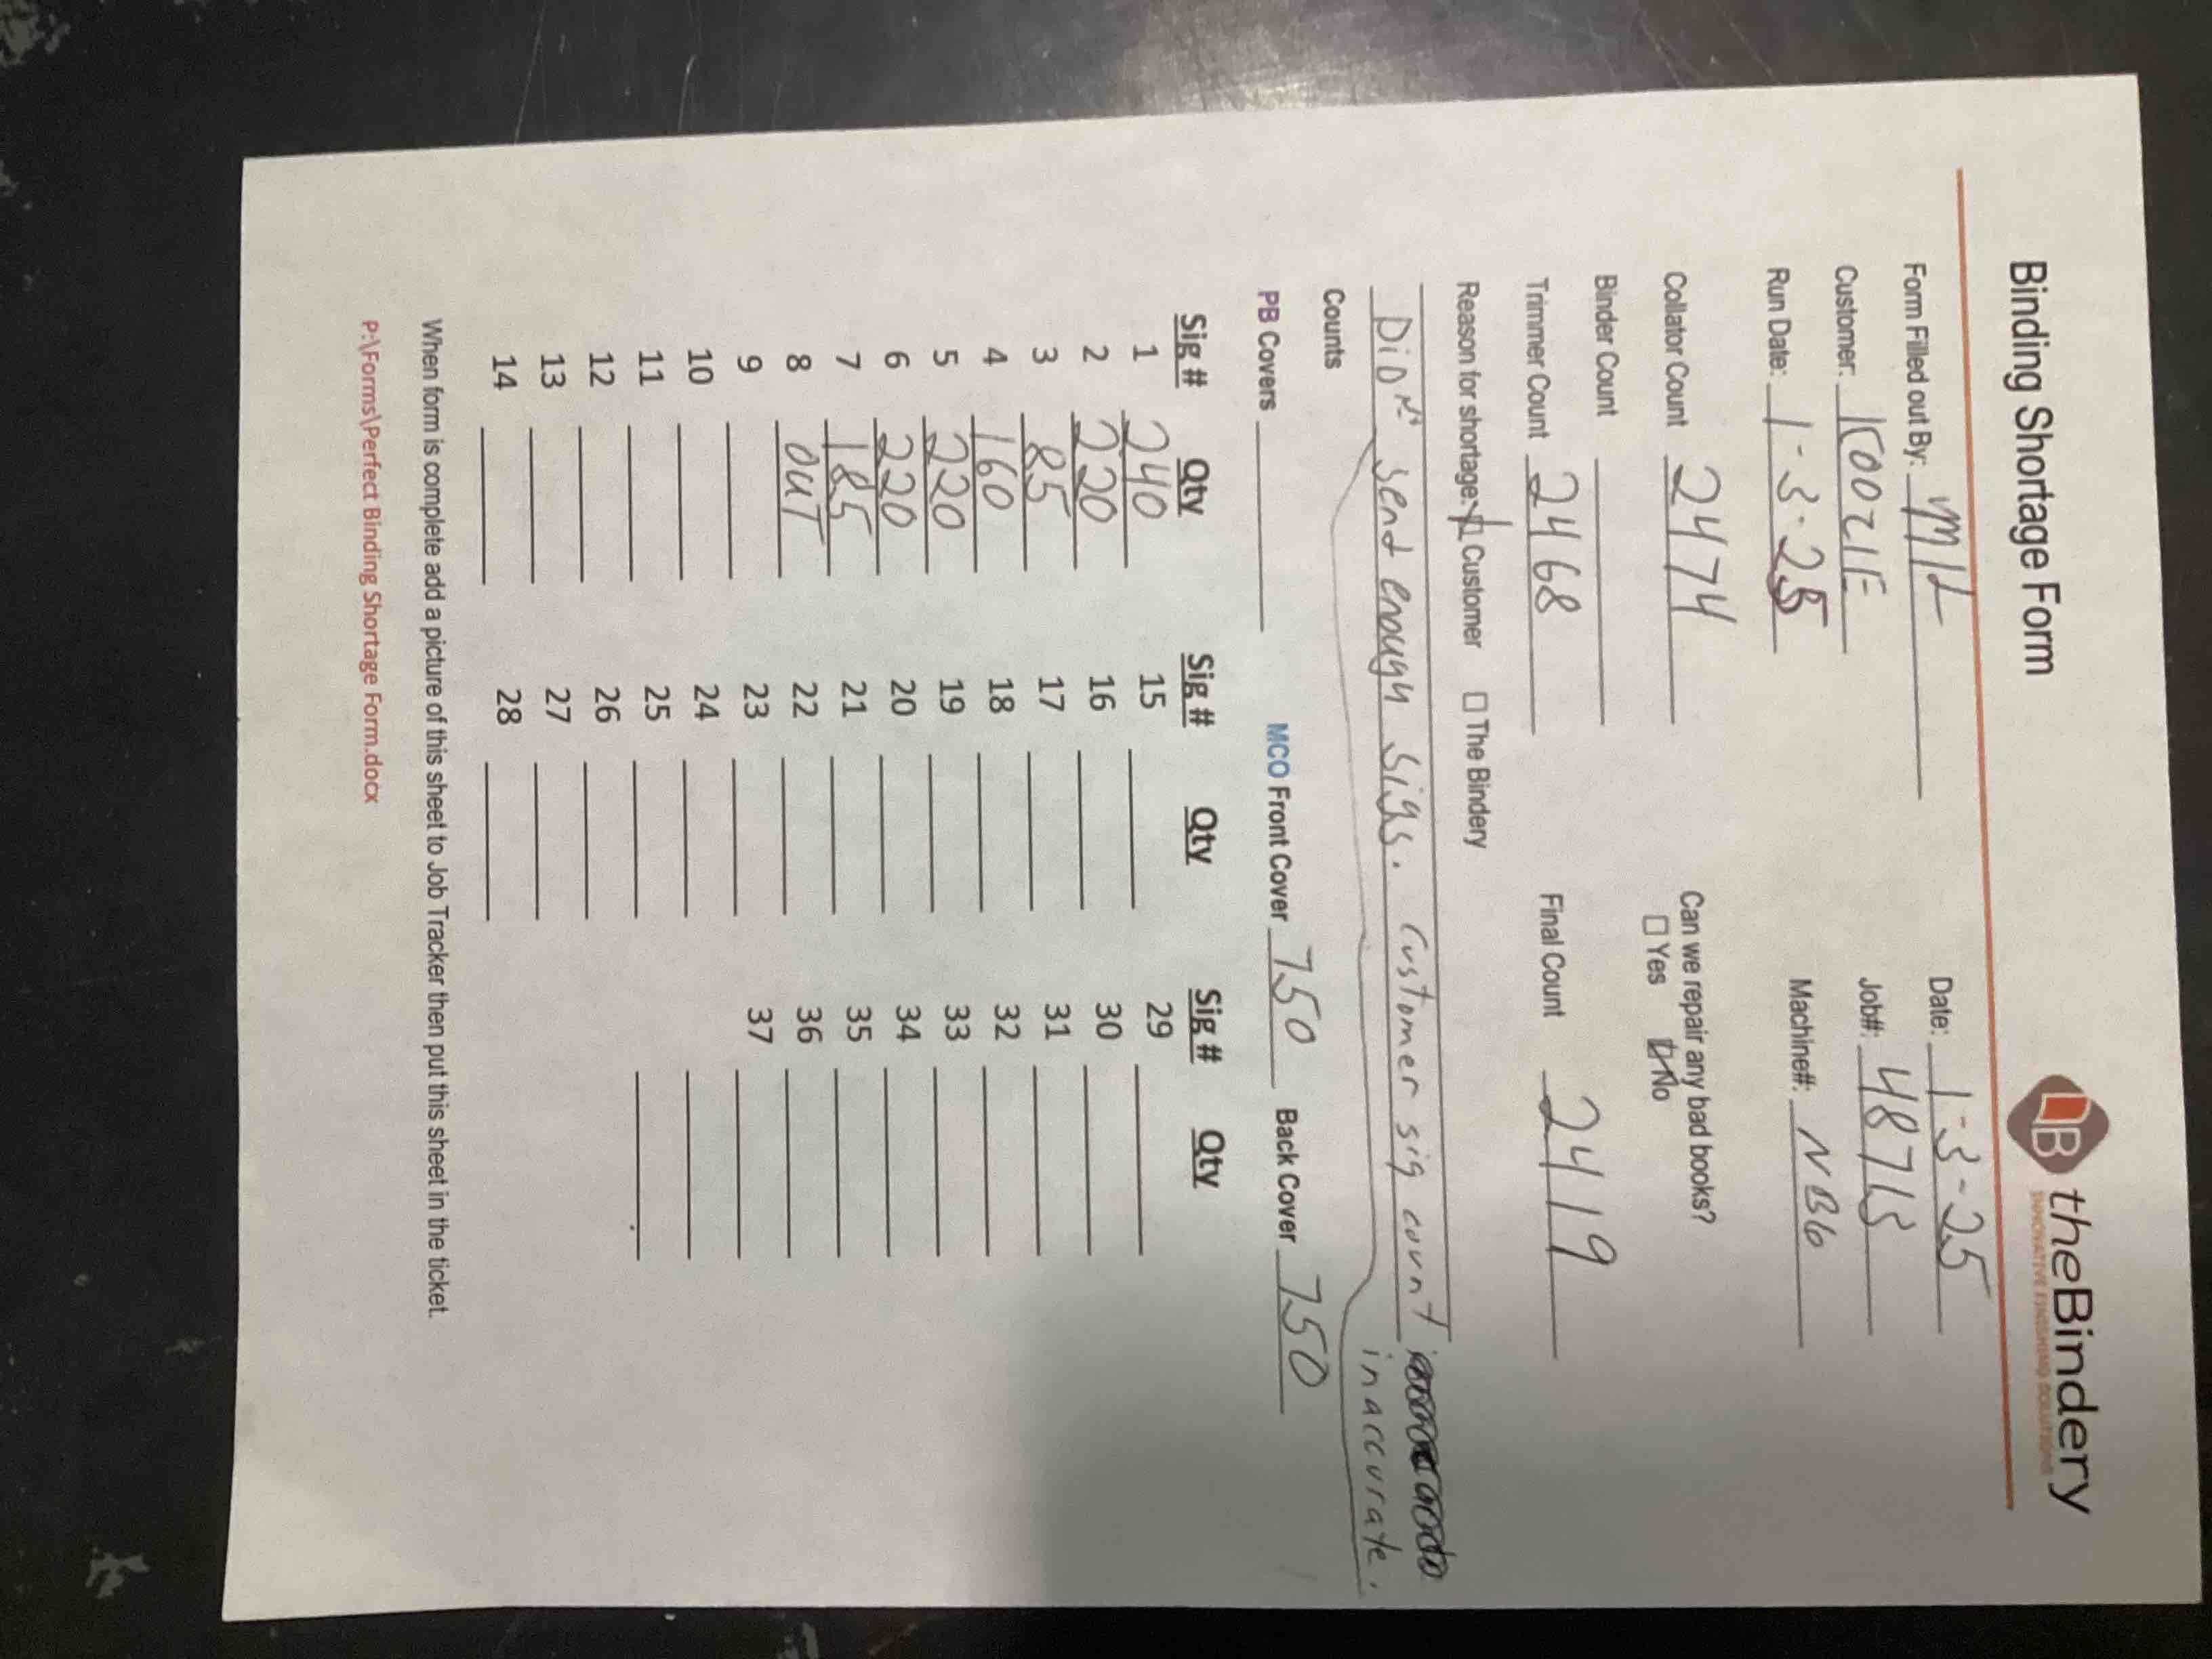 Binding Shortage Form
theBindery
INNOVATIVE FINISHING SOLUTIONS
Form Filled out By: Date: 1-3-25
Customer: KOOZIE Job#: 48715
Run Date: 1-3-25 Machine#: NB6
Collator Count 2474 Can we repair any bad books?
Binder Count □ Yes □ No
Trimmer Count 2468 Final Count 2419
Reason for shortage: □ Customer □ The Bindery
DiDn't send enough sigs. Customer sig count
inaccurate.
Counts
PB Covers MCO Front Cover 750 Back Cover 750
Sig # Qty Sig # Qty Sig # Qty
1 240 15 29
2 220 16 30
3 85 17 31
4 160 18 32
5 220 19 33
6 220 20 34
7 185 21 35
8 OUT 22 36
9 23 37
10 24
11 25
12 26
13 27
14 28
When form is complete add a picture of this sheet to Job Tracker then put this sheet in the ticket.
P:\Forms\Perfect Binding Shortage Form.docx